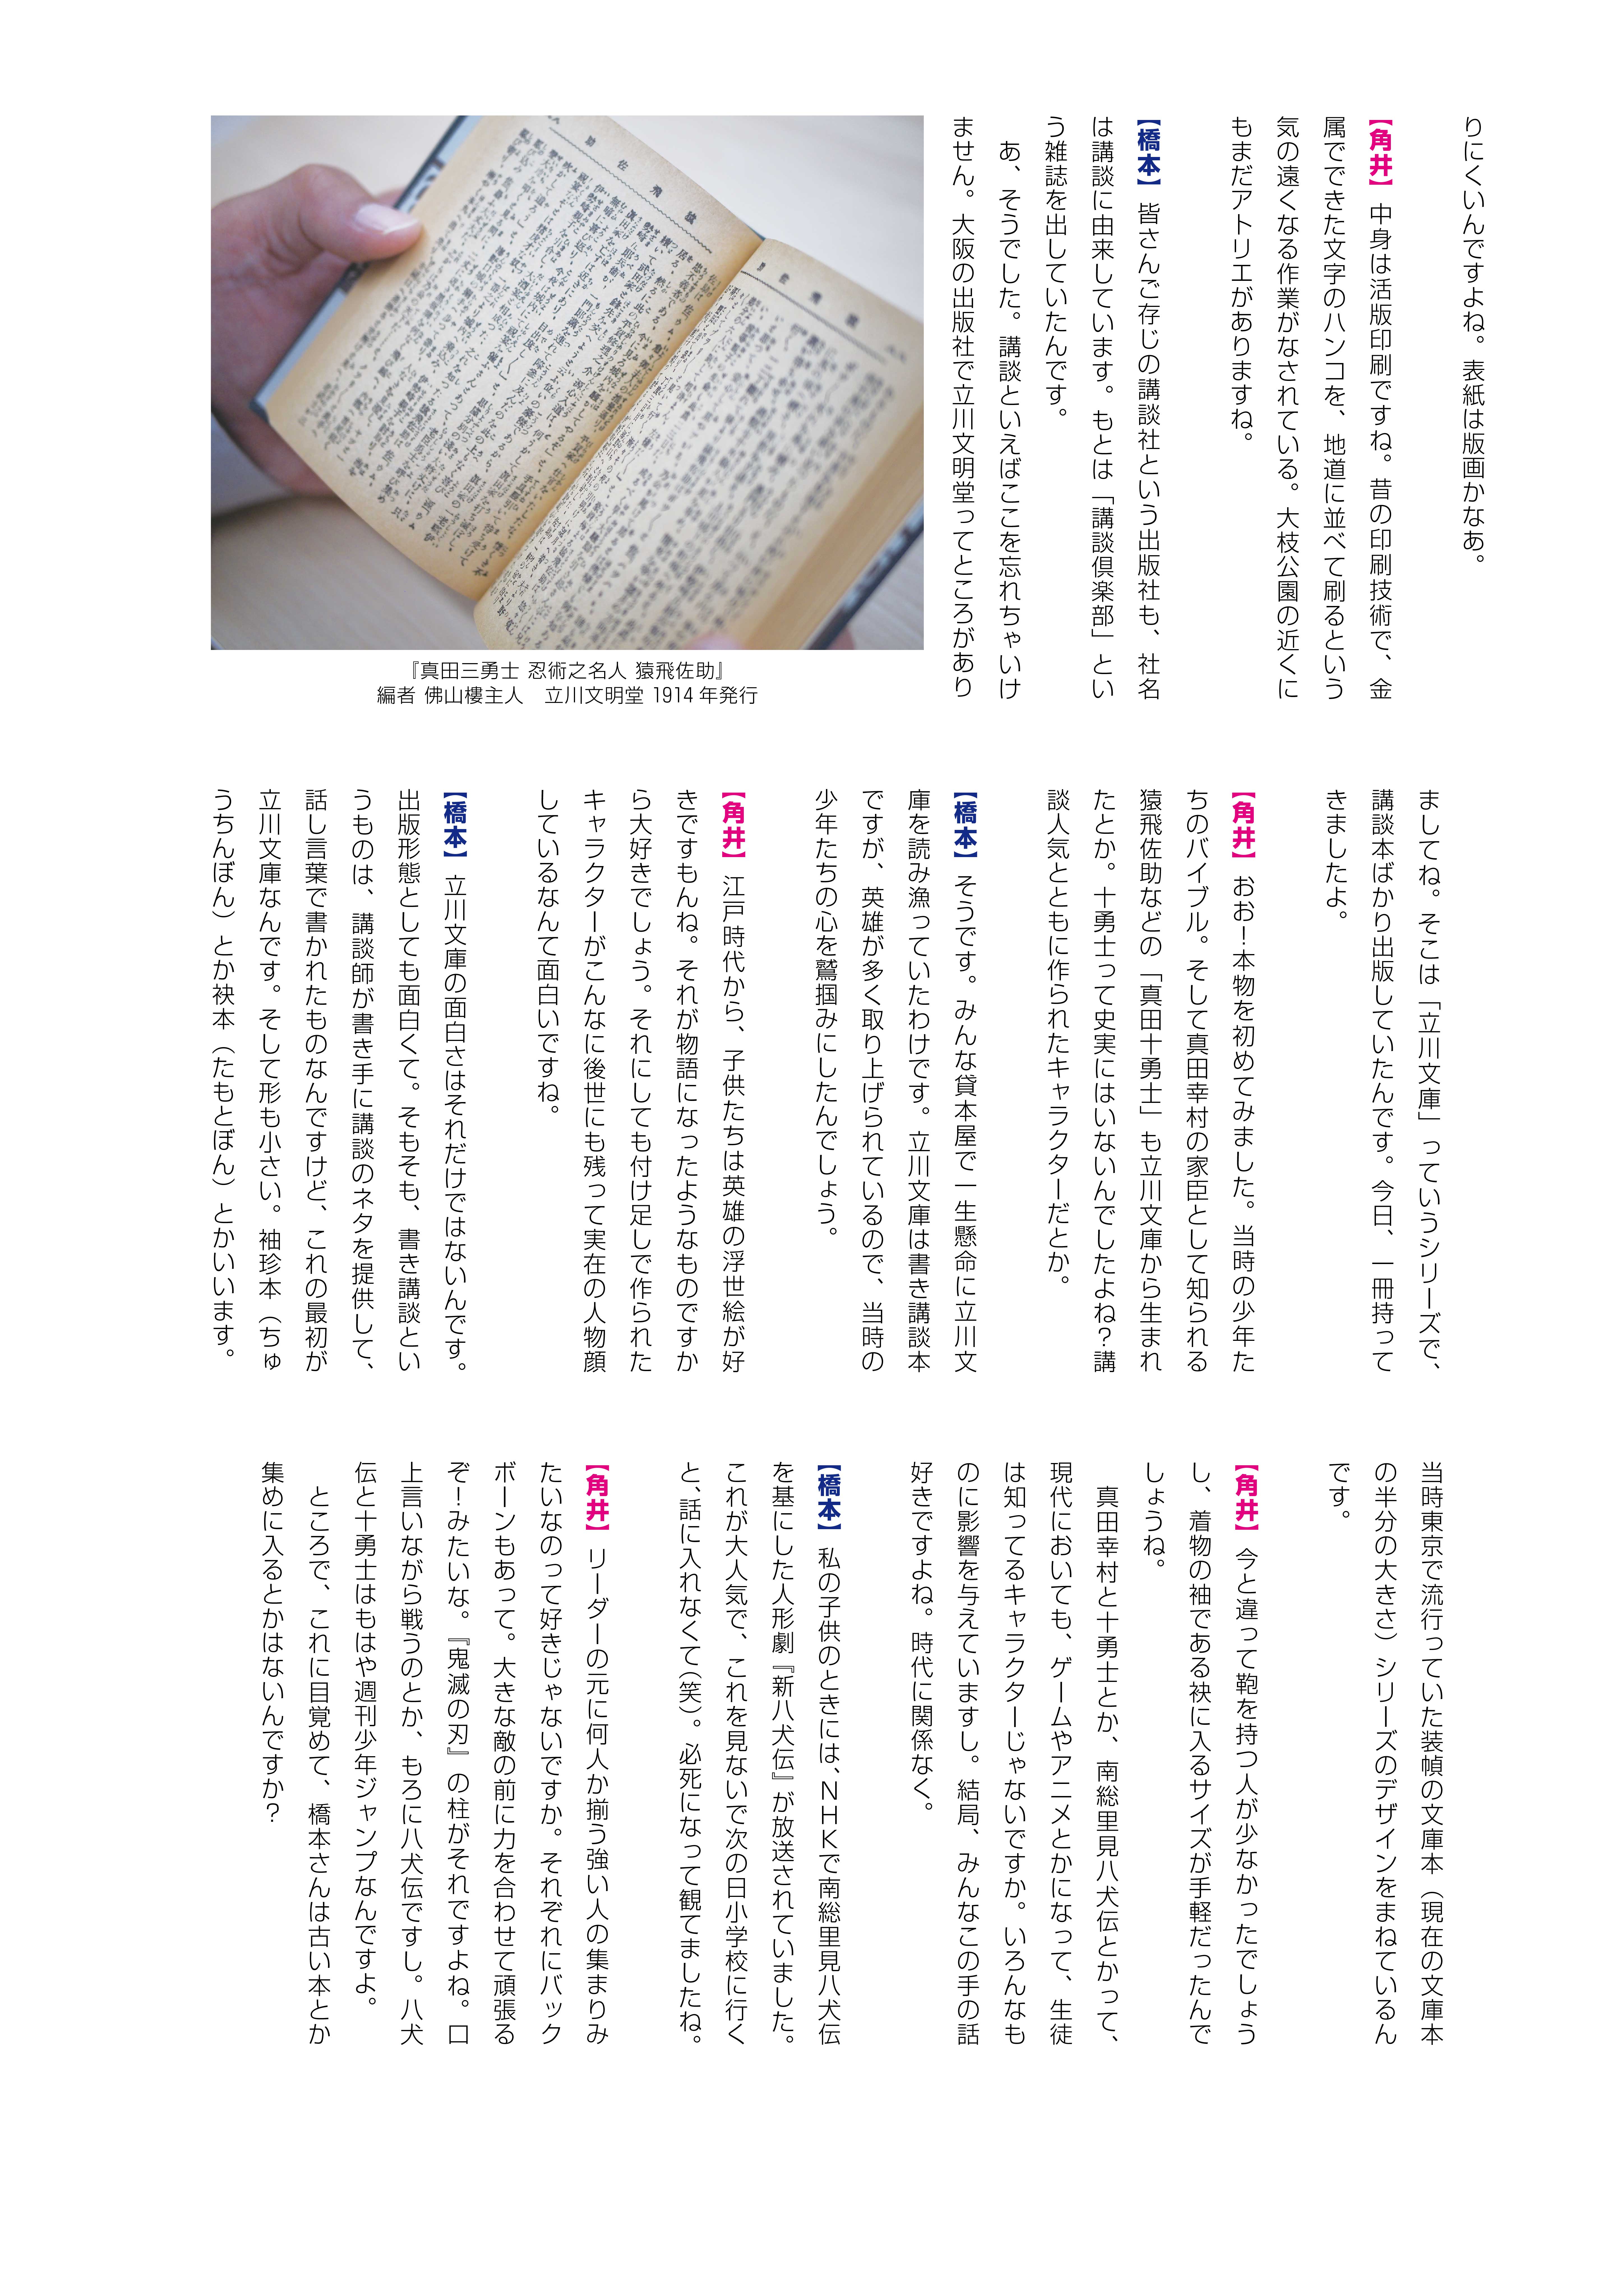 りにくいんですよね。表紙は版画かなあ。
【角井】中身は活版印刷ですね。昔の印刷技術で、金
属でできた文字のハンコを、地道に並べて刷るという
気の遠くなる作業がなされている。大枝公園の近くに
もまだアトリエがありますね。
【橋本】皆さんご存じの講談社という出版社も、社名
は講談に由来しています。もとは「講談倶楽部」とい
う雑誌を出していたんです。
あ、そうでした。講談といえばここを忘れちゃいけ
ません。大阪の出版社で立川文明堂ってところがあり
『真田三勇士 忍術之名人 猿飛佐助』
編者 佛山樓主人　立川文明堂 1914年発行
ましてね。そこは「立川文庫」っていうシリーズで、
講談本ばかり出版していたんです。今日、一冊持って
きましたよ。
【角井】おお！本物を初めてみました。当時の少年た
ちのバイブル。そして真田幸村の家臣として知られる
猿飛佐助などの「真田十勇士」も立川文庫から生まれ
たとか。十勇士って史実にはいないんでしたよね？講
談人気とともに作られたキャラクターだとか。
【橋本】そうです。みんな貸本屋で一生懸命に立川文
庫を読み漁っていたわけです。立川文庫は書き講談本
ですが、英雄が多く取り上げられているので、当時の
少年たちの心を鷲掴みにしたんでしょう。
【角井】江戸時代から、子供たちは英雄の浮世絵が好
きですもんね。それが物語になったようなものですか
ら大好きでしょう。それにしても付け足しで作られた
キャラクターがこんなに後世にも残って実在の人物顔
しているなんて面白いですね。
【橋本】立川文庫の面白さはそれだけではないんです。
出版形態としても面白くて。そもそも、書き講談とい
うものは、講談師が書き手に講談のネタを提供して、
話し言葉で書かれたものなんですけど、これの最初が
立川文庫なんです。そして形も小さい。袖珍本（ちゅ
うちんぼん）とか袂本（たもとぼん）とかいいます。
当時東京で流行っていた装幀の文庫本（現在の文庫本
の半分の大きさ）シリーズのデザインをまねているん
です。
【角井】今と違って鞄を持つ人が少なかったでしょう
し、着物の袖である袂に入るサイズが手軽だったんで
しょうね。
真田幸村と十勇士とか、南総里見八犬伝とかって、
現代においても、ゲームやアニメとかになって、生徒
は知ってるキャラクターじゃないですか。いろんなも
のに影響を与えていますし。結局、みんなこの手の話
好きですよね。時代に関係なく。
【橋本】私の子供のときには、ＮＨＫで南総里見八犬伝
を基にした人形劇『新八犬伝』が放送されていました。
これが大人気で、これを見ないで次の日小学校に行く
と、話に入れなくて（笑）。必死になって観てましたね。
【角井】リーダーの元に何人か揃う強い人の集まりみ
たいなのって好きじゃないですか。それぞれにバック
ボーンもあって。大きな敵の前に力を合わせて頑張る
ぞ！みたいな。『鬼滅の刃』の柱がそれですよね。口
上言いながら戦うのとか、もろに八犬伝ですし。八犬
伝と十勇士はもはや週刊少年ジャンプなんですよ。
ところで、これに目覚めて、橋本さんは古い本とか
集めに入るとかはないんですか？